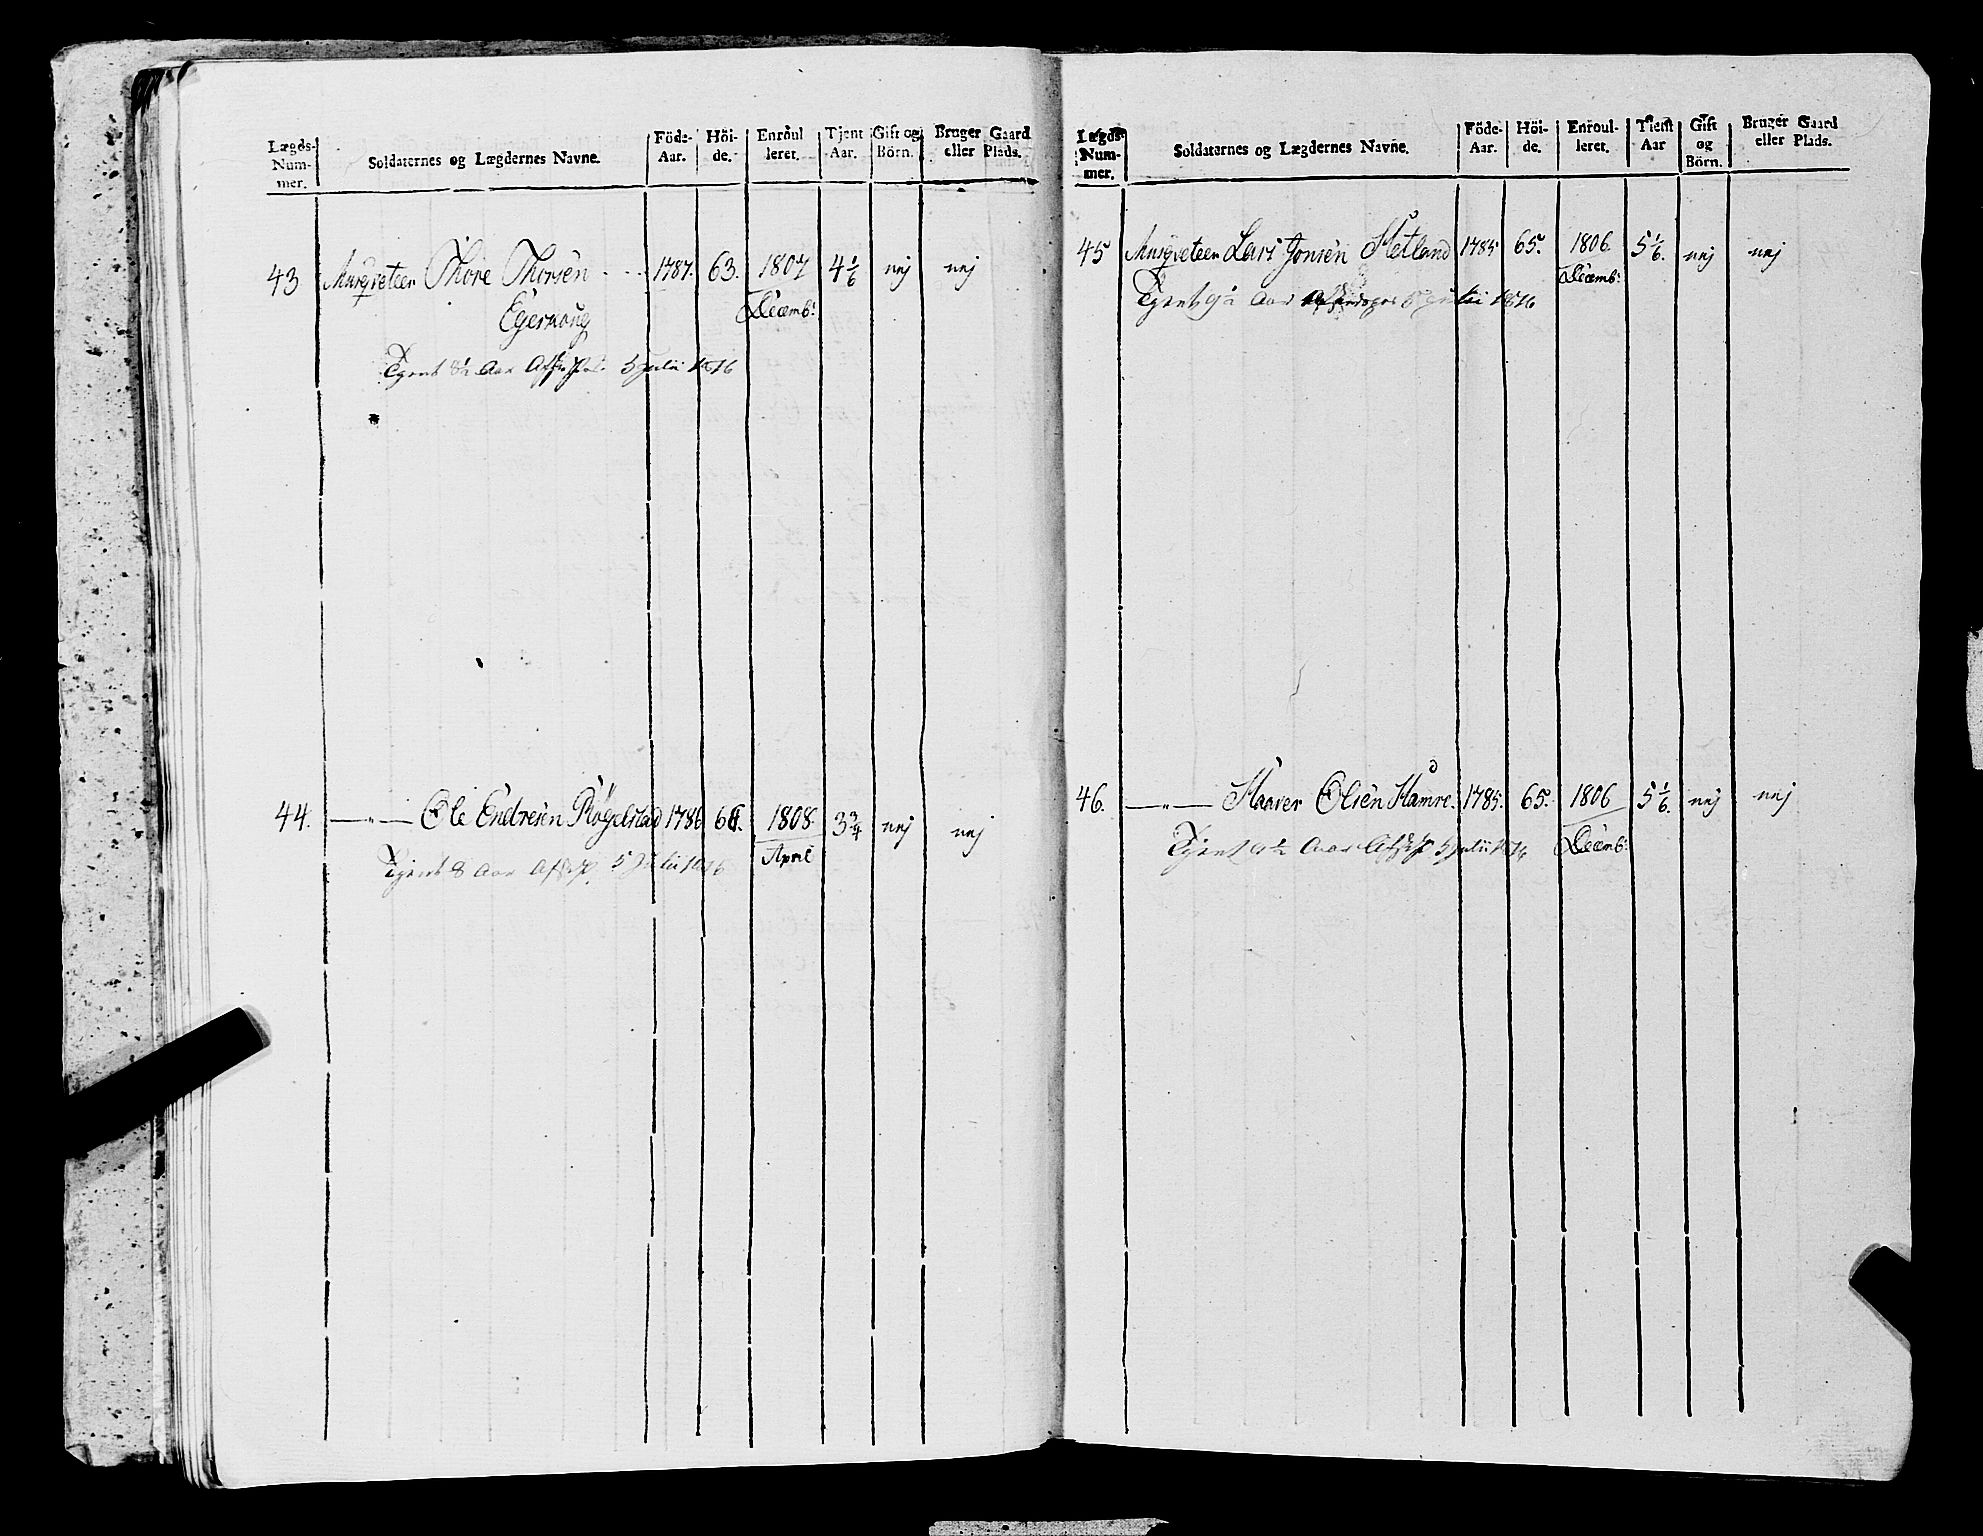 Lægds-Num-mer. Soldaternes og Lægdernes Navne. Föde-Aar. Höi-de. Enroul leret. Tjent Aar. Gift og Börn. Bruger Gaard eller Plads.
43 Musqveteer Thore Thorsen 1787. 63. 1807 4 1/6 nej nej
Decemb:
Tjent 8½ Aar 5 Julii 1816
44. —„— Ole Endresen 1786 1808. 3¾ nej nej
April
Tjent 8 Aar Afsk. 5 Julii 1816
Lægds-Num-mer. Soldaternes og Lægdernes Navne. Föde-Aar. Höi-de. Enroul-leret. Tjent Aar Gift og Börn. Bruger Gaard eller Plads.
45 Musqveteer Lars Jonsen Hetland 1785 65. 1806 5 1/6. nej nej
Decemb:
Tjent 9½ Aar 5 Julii 1816
46. —„— Haaver Olsen Hamre. 1785. 65. 1806 5 1/6. nej nej
Decemb:
Tjent 9½ Aar Afsk. 5 Julii 1816